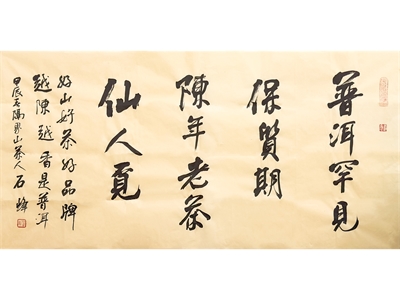 普洱罕見
保質期
陳年老茶
仙人覓
好山好茶好品牌
越陳越香是普洱
甲辰石陽象山茶人石峰